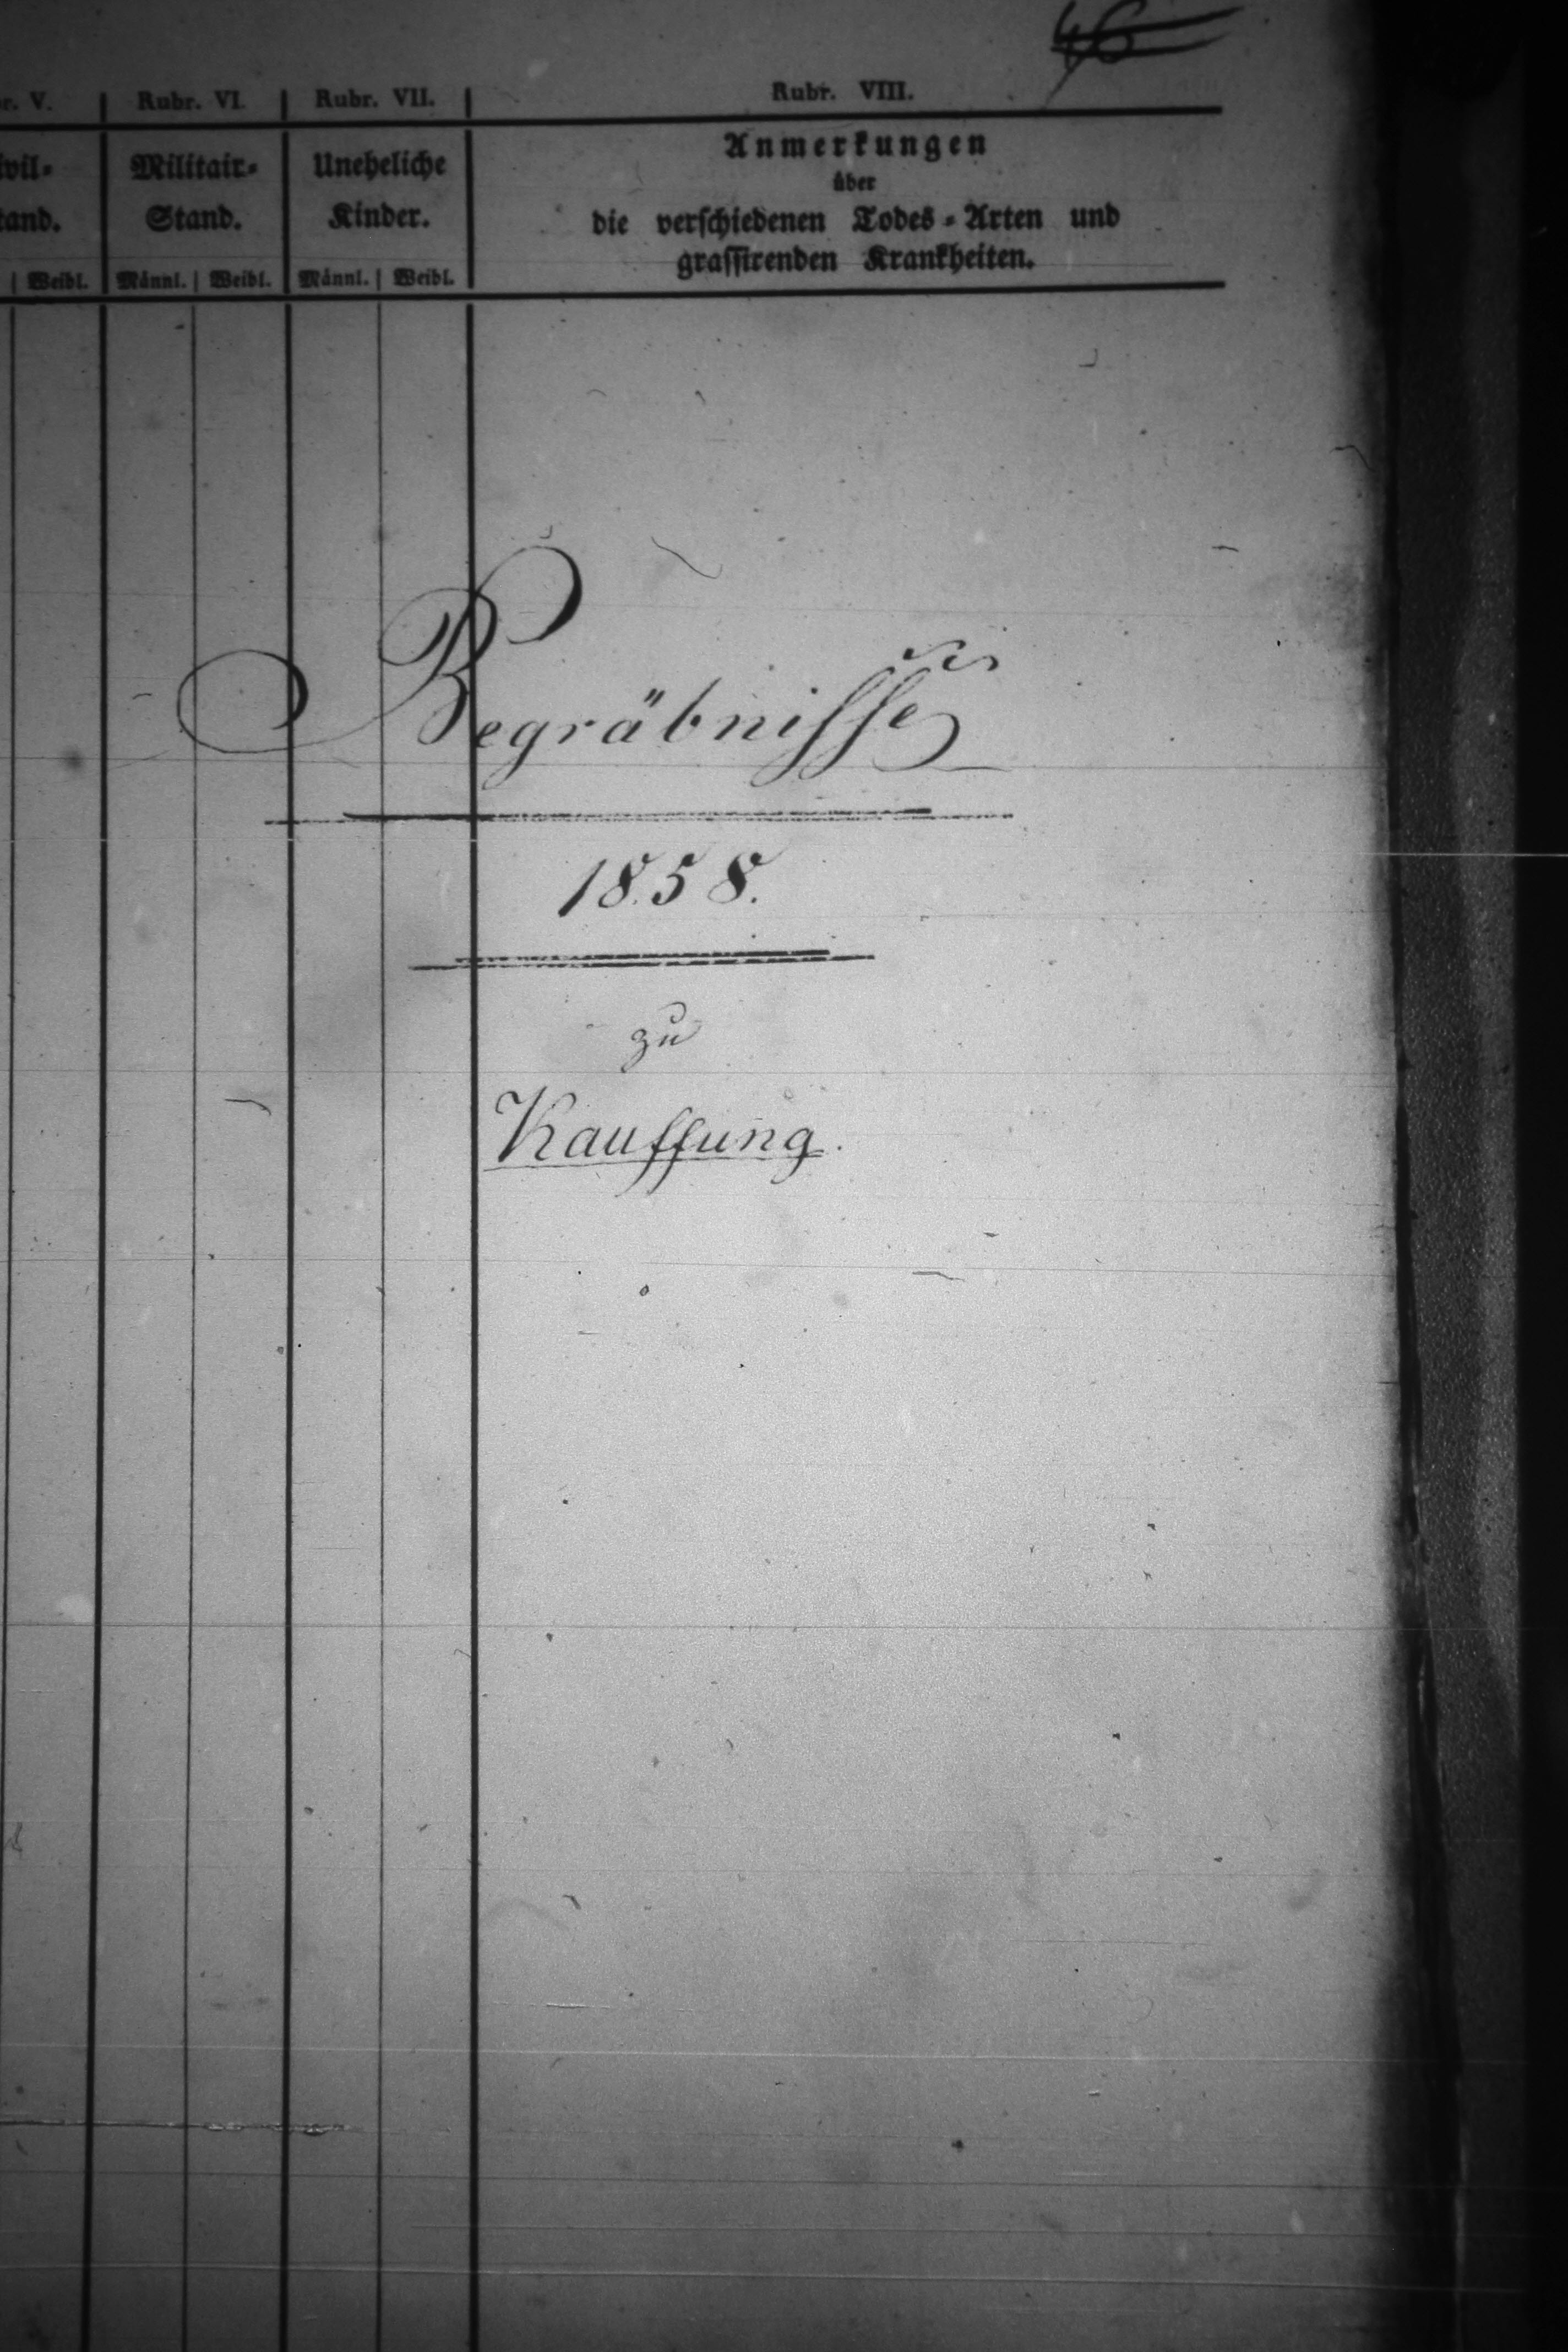 46
r. V. Rubr. VI. Rubr. VII. Rubr. VIII.
ivil- Militair- Uneheliche Anmerkungen
über
tand. Stand. Kinder. die verschiedenen Todes-Arten und
grassirenden Krankheiten.
Weibl. Männl. Weibl. Männl. Weibl.
Begräbnisse
1858.
zu
Kauffung.